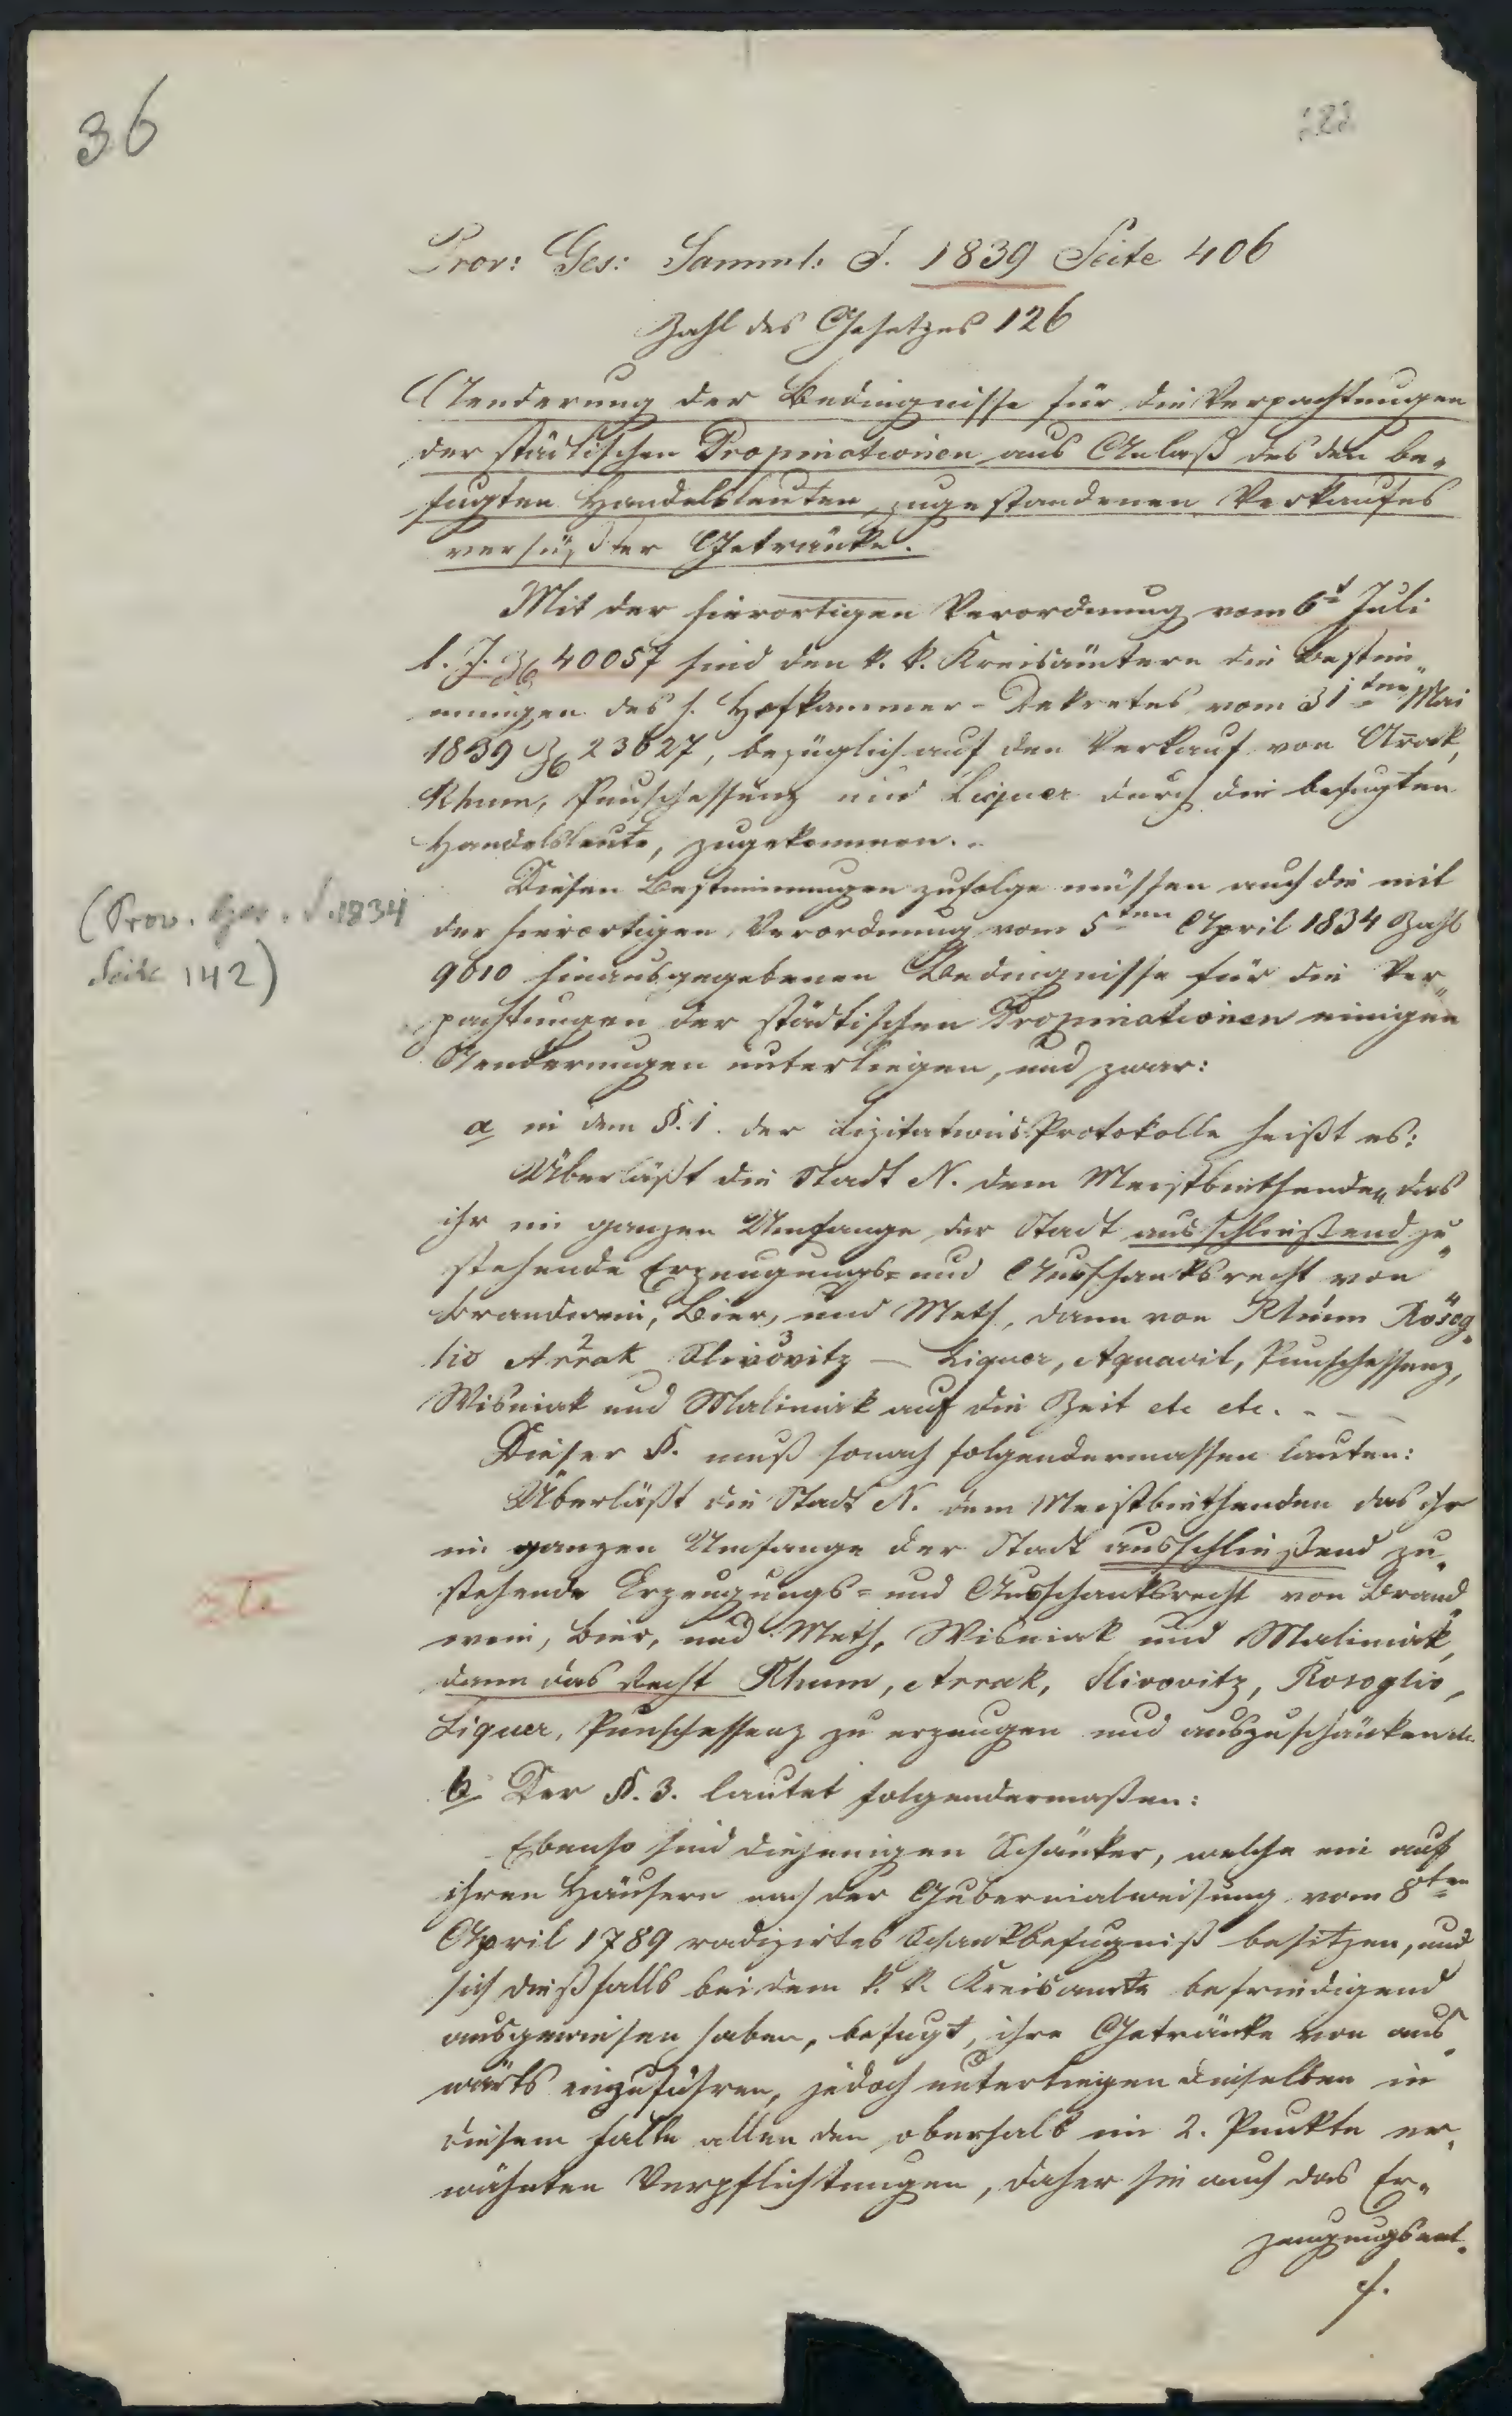 36
Prov: Ges: Samml: J. 1839 Seite 406
Zahl des Gesetzes 126
Aenderung der Bedingnisse für die Verpachtungen
der städtischen Propinationen aus Anlaß des den be-
fugten Handelsleuten zugestandenen Verkaufes
versüßter Getränke.
Mit der hierortigen Verordnung vom 6t Juli
l. J. Z 40057 sind den k. k. Kreisämtern die Bestim-
mungen des h. Hofkammer-Dekretes vom 31ten Mai
1839 Z 23627, bezüglich auf den Verkauf von Arak,
Rhum, Punschessenz und Liquer durch die befugten
Handelsleute, zugekommen.
Diesen Bestimmungen zufolge müssen auch die mit
(Prov. Ges. S. 1834
der hierortigen Verordnung vom 5ten April 1834 Zahl
Seite 142)
9010 hinausgegebenen Bedingnisse für die Ver-
pachtungen der städtischen Propinationen einigen
Aenderungen unterliegen, und zwar:
a in dem §. 1. der Lizitations Protokolle heißt es:
Überläßt die Stadt N. dem Meistbiethenden das
ihr im ganzen Umfange der Stadt ausschließend zu-
stehende Erzeugungs- und Ausschanksrecht von
Brandwein, Bier, und Meth, dann von Rhum Rosog-
lio Arrak Slivovitz – Liquer, Aquavit, Punschessenz,
Wisniak und Maliniak auf die Zeit etc etc. - - -
Dieser §. muß sonach folgendermassen lauten:
Überläßt die Stadt N. dem Meistbiethenden das ihr
im ganzen Umfange der Stadt ausschließend zu-
stehende Erzeugungs- und Ausschanksrecht von Brand-
wein, Bier, und Meth, Wisniak und Maliniak,
dann das Recht Rhum, Arrak, Slivovitz, Rosoglio,
Liquer, Punschessenz zu erzeugen und auszuschänken etc.
b Der §. 3. lautet folgendermaßen:
Ebenso sind diejenigen Schänker, welche ein auf
ihren Häusern nach der Gubernialweisung vom 8ten
April 1789 radizirtes Schankbefugniß besitzen, und
sich dießfalls bei dem k. k. Kreisamte befriedigend
ausgewiesen haben, befugt, ihre Getränke von aus-
wärts einzuführen, jedoch unterliegen dieselben in
diesem Falle allen den oberhalb im 2. Punkte er-
wähnten Verpflichtungen, daher sie auch das Er-
zeugungsent-